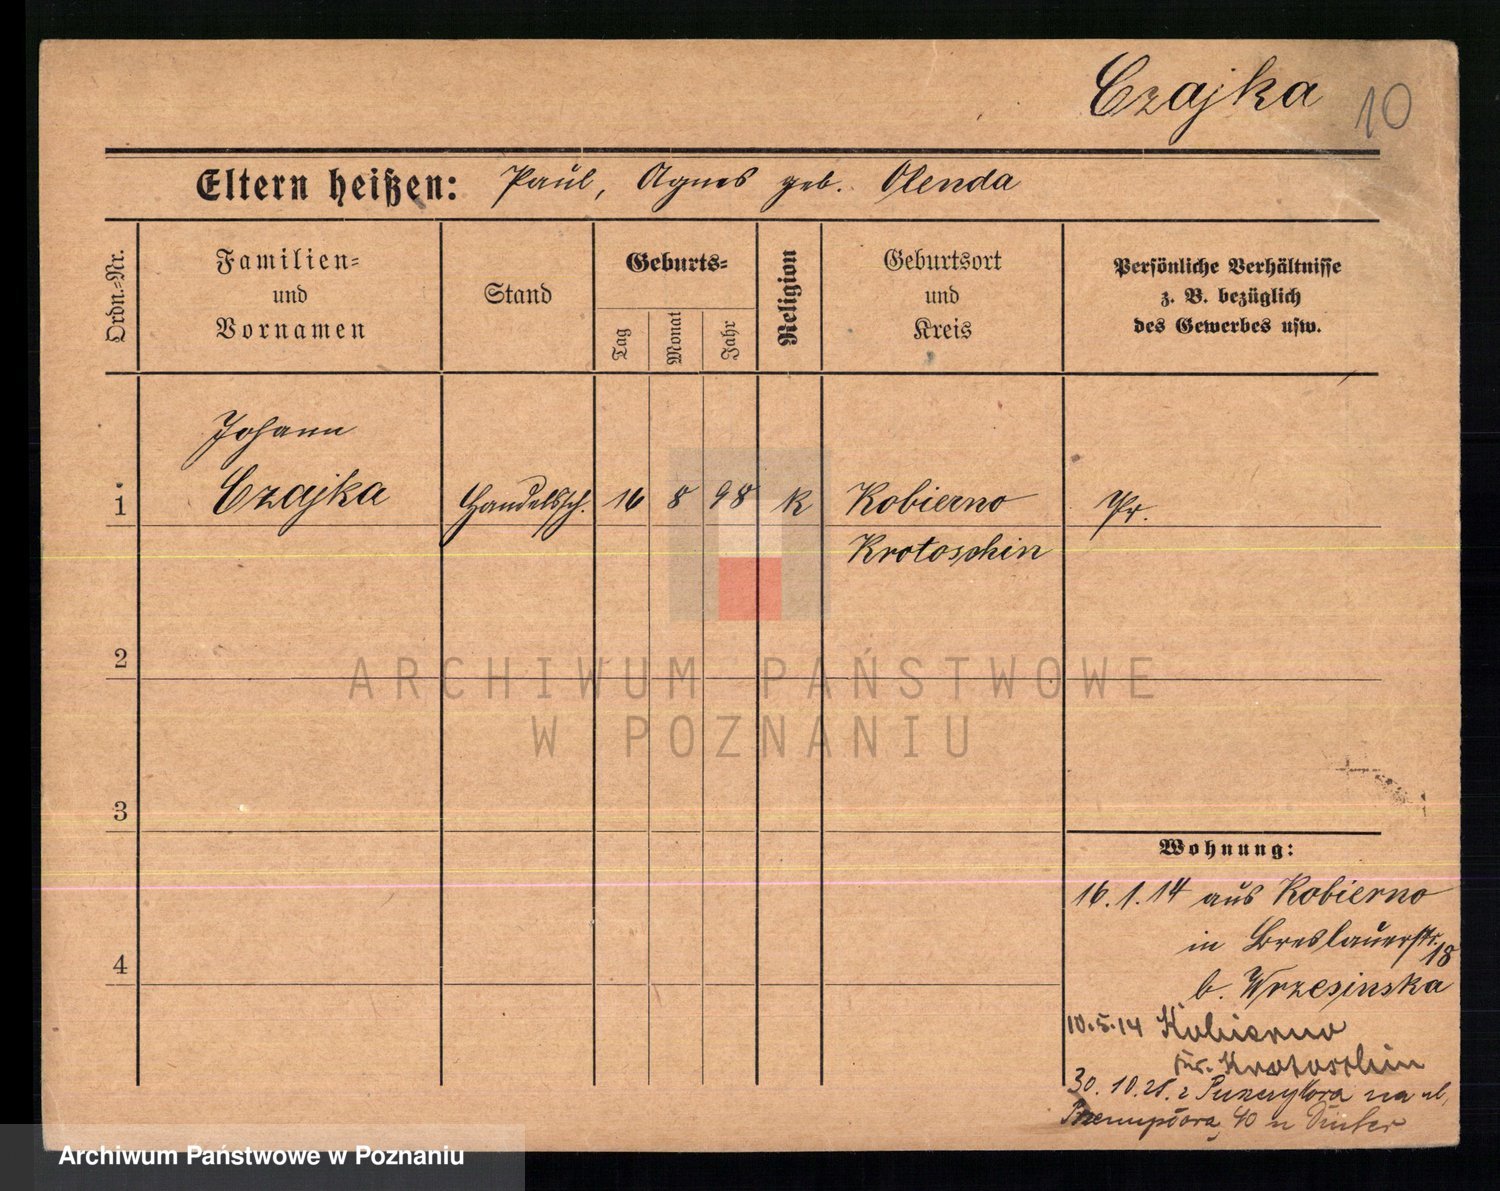 Czajka 10
Eltern heißen: Paul, Agnes geb. Olenda
Ordn.-Nr.
Familien-
und
Vornamen
Stand
Geburts-
Tag
Monat
Jahr
Religion
Geburtsort
und
Kreis
Persönliche Verhältnisse
z. B. bezüglich
des Gewerbes usw.
Johann
1 Czajka Handelssch. 16 8 98 k Kobierno Pr.
Krotoschin
2
ARCHIWUM PAŃSTWOWE
W POZNANIU
3
Wohnung:
16.1.14 aus Kobierno
in Breslauerstr. 18
4
b. Wrzesinska
10.5.14 Kobierno
Kr. Krotoschin
30.10.21. z na ul,
Przemysłora 40 u
Archiwum Państwowe w Poznaniu